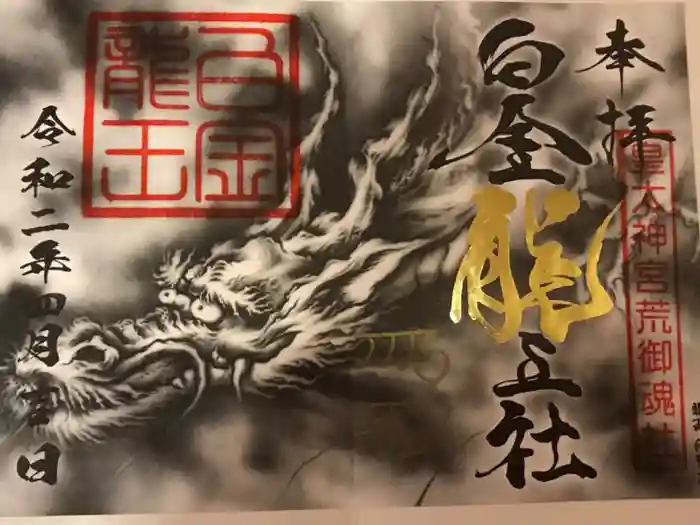 奉拝
重太神宮荒御魂社
白金龍王社
白金
龍王
令和二年四月吉日